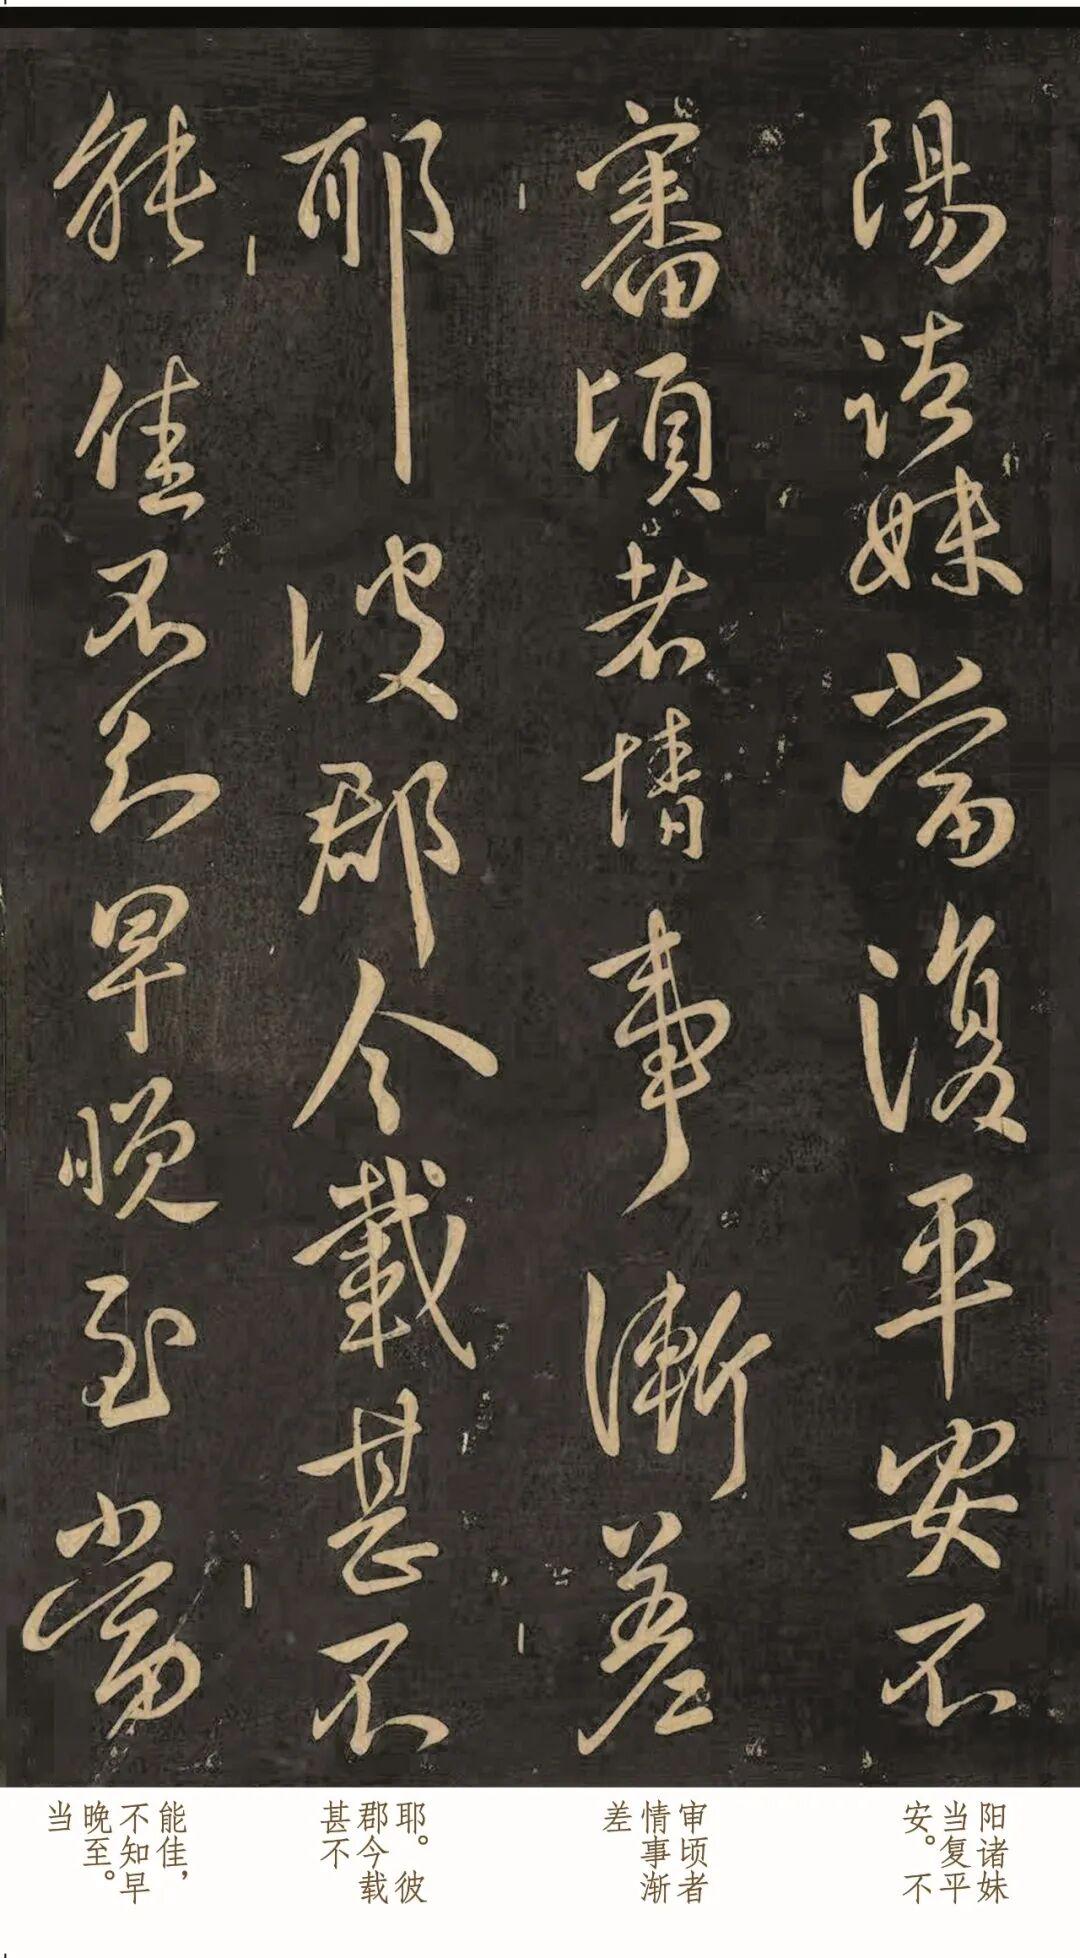 陽諸妹當復平安不
審頃者情事漸差
耶彼郡今載甚不
能佳不知早晚至當
阳诸妹
当复平
安。不
审顷者
情事渐
差
耶。彼
郡今载
甚不
能佳，
不知早
晚至。
当